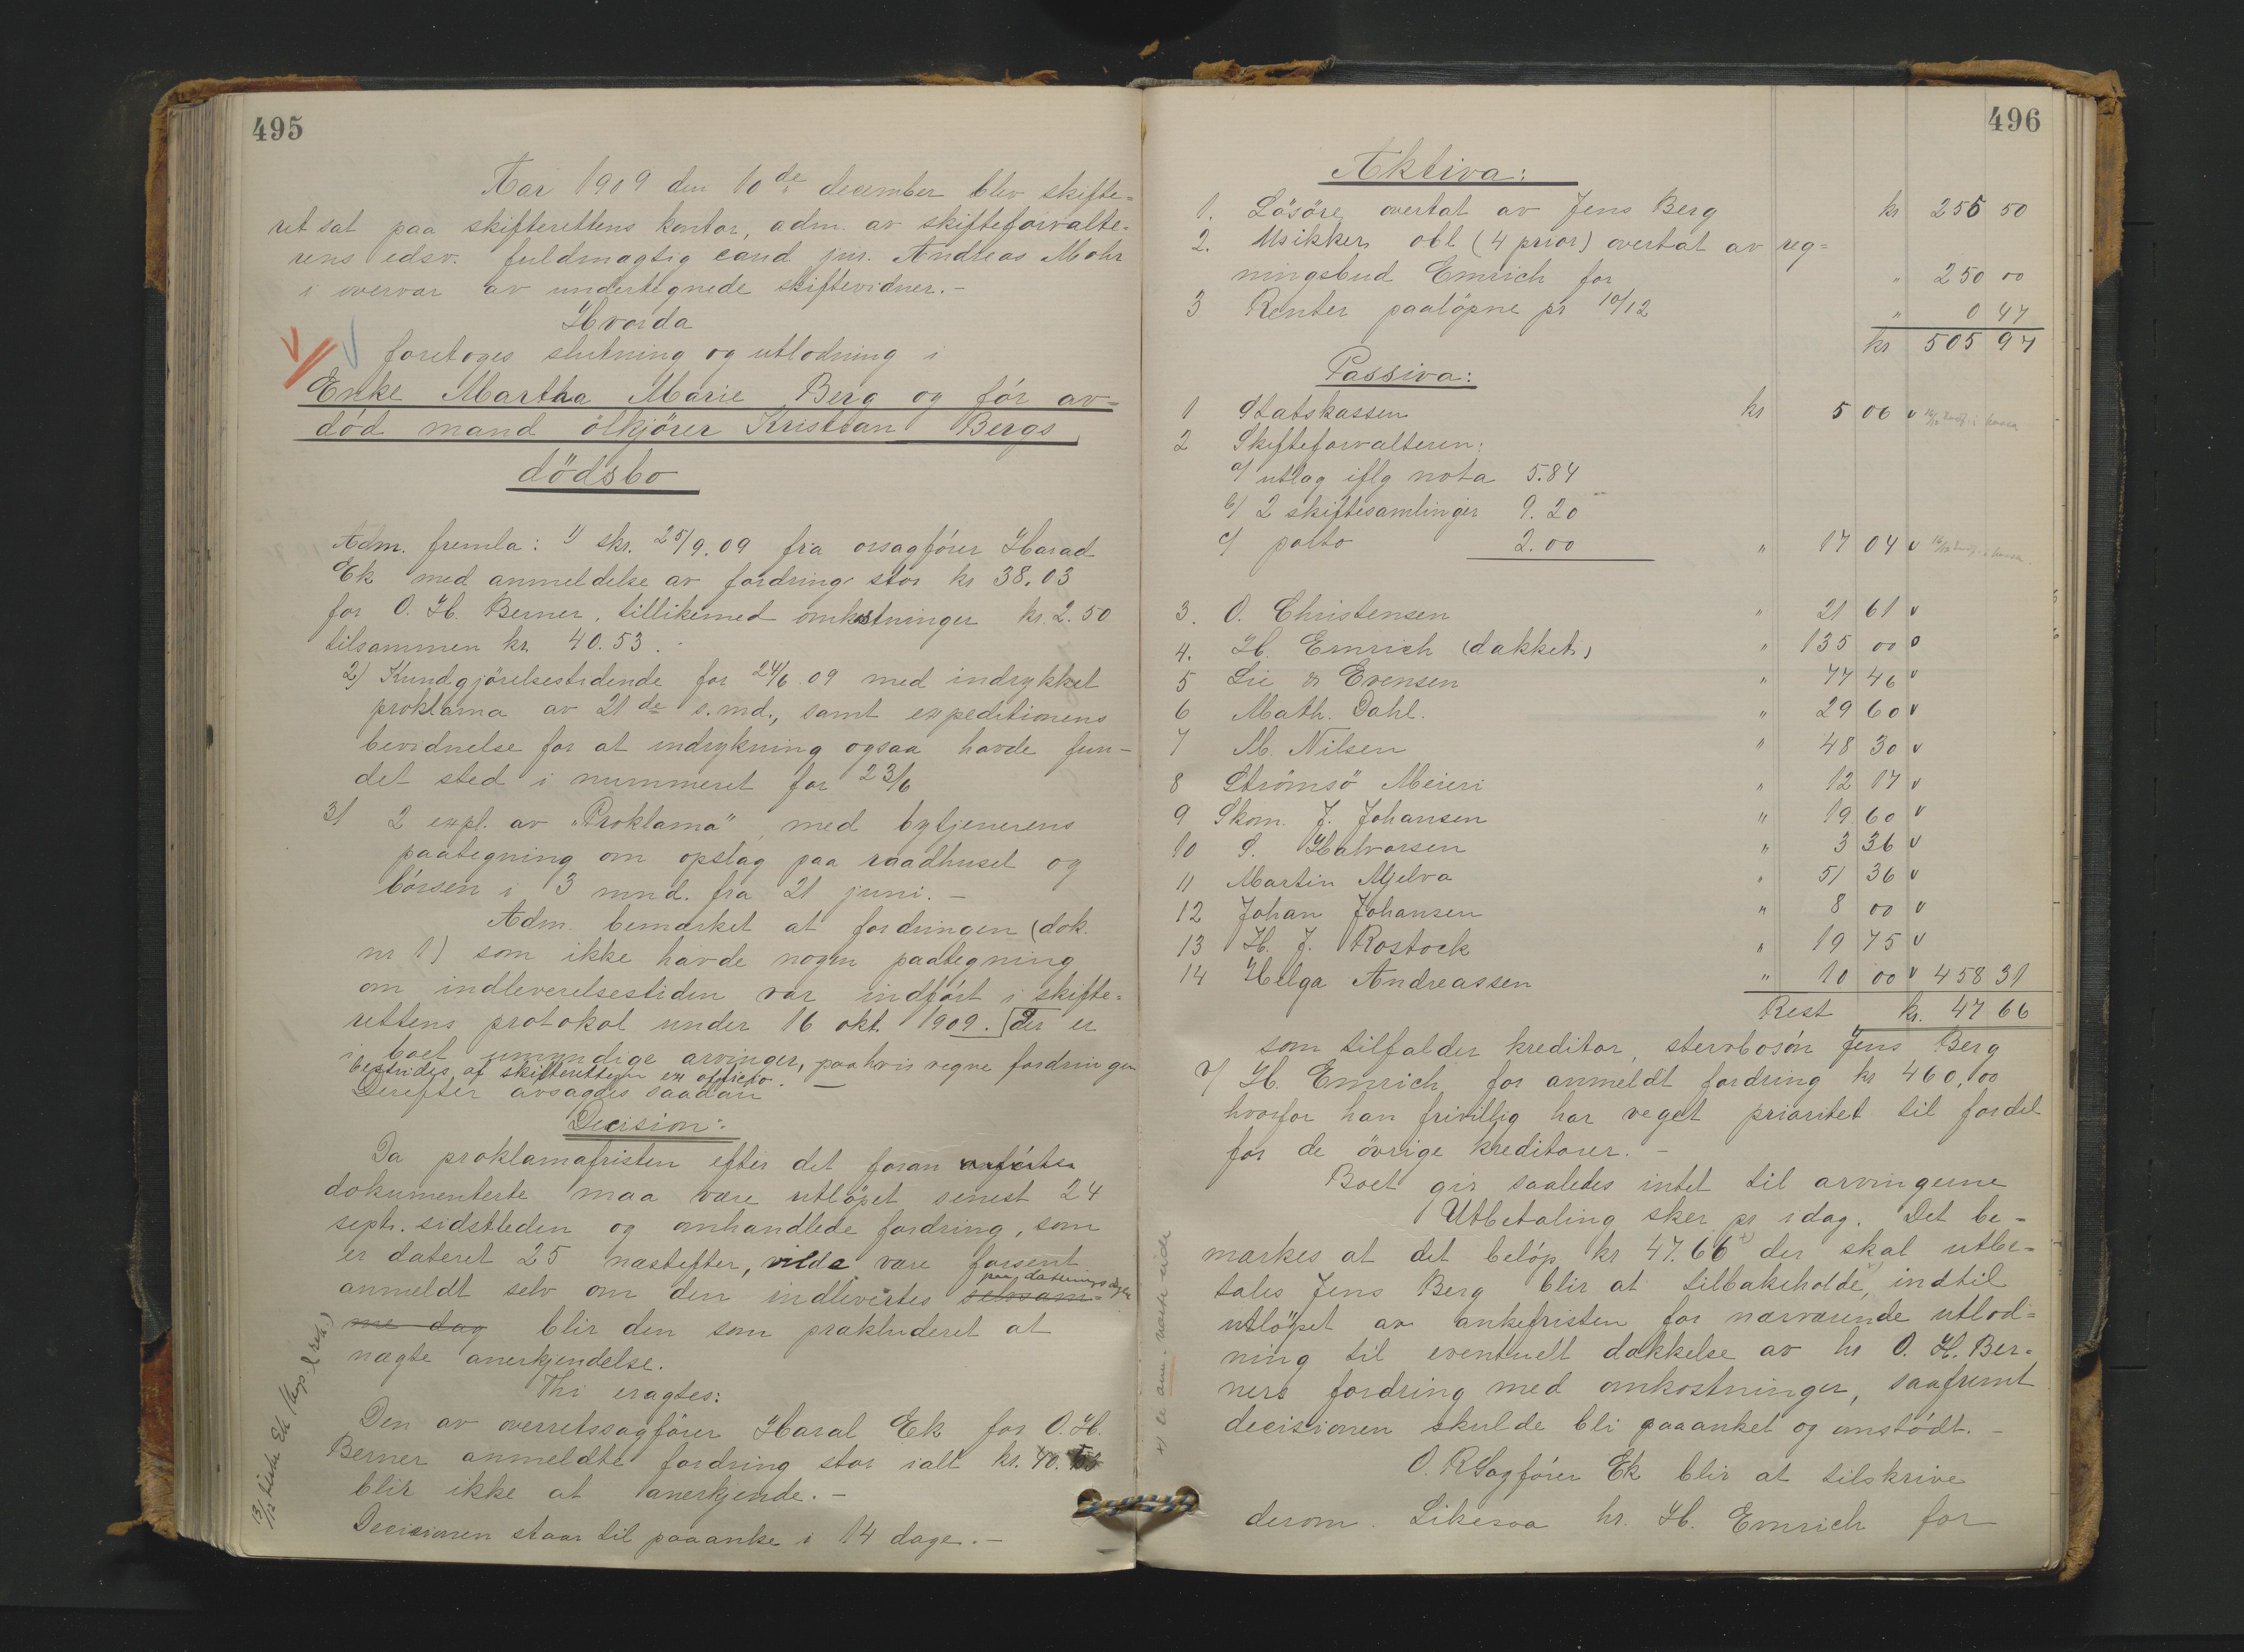 495
Aar 1909 den 10de december blev skifte-
ret sat paa skifterettens kontor, adm. av skifteforvalte-
rens edsv. fuldmægtig cand jur. Andreas Mohr
i overvær av undertegnede skiftevidner.-
Hvorda
foretoges slutning og utlodning i
Enke Martha Marie Berg og før av-
død mand ølkjører Kristian Bergs
dødsbo
Adm. fremla: 1) skr. 25/9.09 fra orsagfører Harad
Ek med anmeldelse av fordring stor kr 38.03
for O. H. Berner, tillikemed omkostninger kr. 2.50
tilsammen kr. 40.53.
2) Kundgjørelsestidende for 24/6.09 med indrykket
proklama av 21de s.md., samt expeditionens
bevidnelse for at indrykning ogsaa havde fun-
det sted i nummeret for 23/6
3) 2 expl. av "Proklama", med bytjenerens
paategning om opslag paa raadhuset og
børsen i 3 mnd. fra 21 juni.-
Adm. bemærket at fordringen (dok.
nr 1) som ikke havde nogen paategning
om indleverelsestiden var indført i skifte-
rettens protokol under 16 okt. 1909. Der er
i boet umyndige arvinger, paa hvis vegne fordringen
bestrides af skifteretten ex officio.
Derefter avsagdes saadan
Decision:
Da proklamafristen efter det foran anførte
dokumenterte maa være utløpet senest 24
septr. sidstleden og omhandlede fordring, som
er dateret 25 næstefter, vilde være forsent
anmeldt selv om den indlevertes selvsam- paa dateringsdagen
me dag blir den som prækluderet at
nægte anerkjendelse.
Thi eragtes:
Den av overretssagfører Haral Ek for O. H.
Berner anmeldte fordring stor ialt kr. 40.53
blir ikke at anerkjende.-
Decisionen staar til paaanke i 14 dage.-
496
Aktiva:
1. Løsøre overtat av Jens Berg kr 255 50
2. Usikker obl (4 prior) overtat av reg-
ningsbud Emrich for " 250 00
3 Renter paaløpne pr 10/12 " 0 47
kr 505 97
Passiva:
1 Statskassen kr 5 06 v
2 Skifteforvalteren:
a/ utlag iflg nota 5.84
b/ 2 skiftesamlinger 9.20
c/ polto 2.00 " 17 04 v
3. O. Christensen " 21 61 v
4. H. Emrich (dækket) " 135 00 o
5 Lie & Evensen " 77 46 v
6 Math. Dahl. " 29 60 v
7 M. Nilsen " 48 30 v
8 Strømsø Meieri " 12 17 v
9 Skom. J. Johansen " 19 60 v
10 S. Halvorsen " 3 36 v
11 Martin Mjelva " 51 36 v
12 Johan Johansen " 8 00 v
13 H. J. Rostock " 19 75 v
14 Helga Andreassen " 10 00 v 458 31
Rest kr. 47 66
som tilfalder kreditor, stervbosøn Jens Berg
H. Emrich for anmeldt fordring kr 460,00
hvorfor han frivillig har veget prioritet til fordel
for de øvrige kreditorer.-
Boet gir saaledes intet til arvingerne
Utbetaling sker pr idag. Det be-
mærkes at det beløp kr 47.66 x) der skal utbe-
tales Jens Berg blir at tilbakeholde, indtil
utløpet av ankefristen for nærværende utlod-
ning til eventuelt dækkelse av hr O. H. Ber-
ners fordring med omkostninger, saafremt
decisionen skulde bli paaanket og omstødt.-
O. R Sagfører Ek blir at tilskrive
derom. Likesaa hr. H. Emrich for
x) se anm. næste side